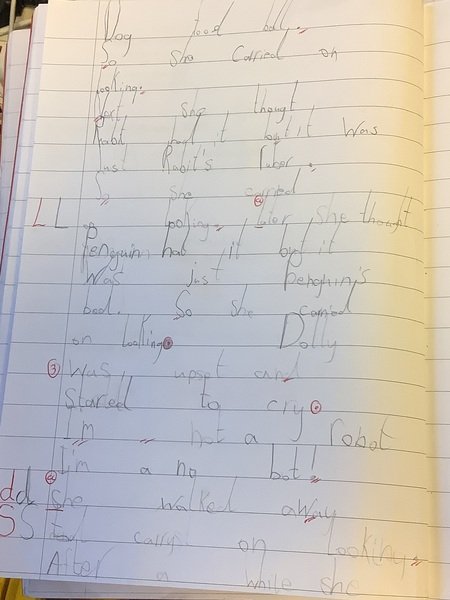 Dog food ball.
So she carried on
looking.
Next she thougt
Rabit had it but it was
Just Rabit's
So she carried
LL on looking. Later she thought
Penguin had it but it
was just Penguin's
book. So she carried
on looking. Dolly
3 was upset and
Stared to cry.
I'm not a robot
I'm a no bot!
dd she walked away
SS to carry on looking.
After a while she